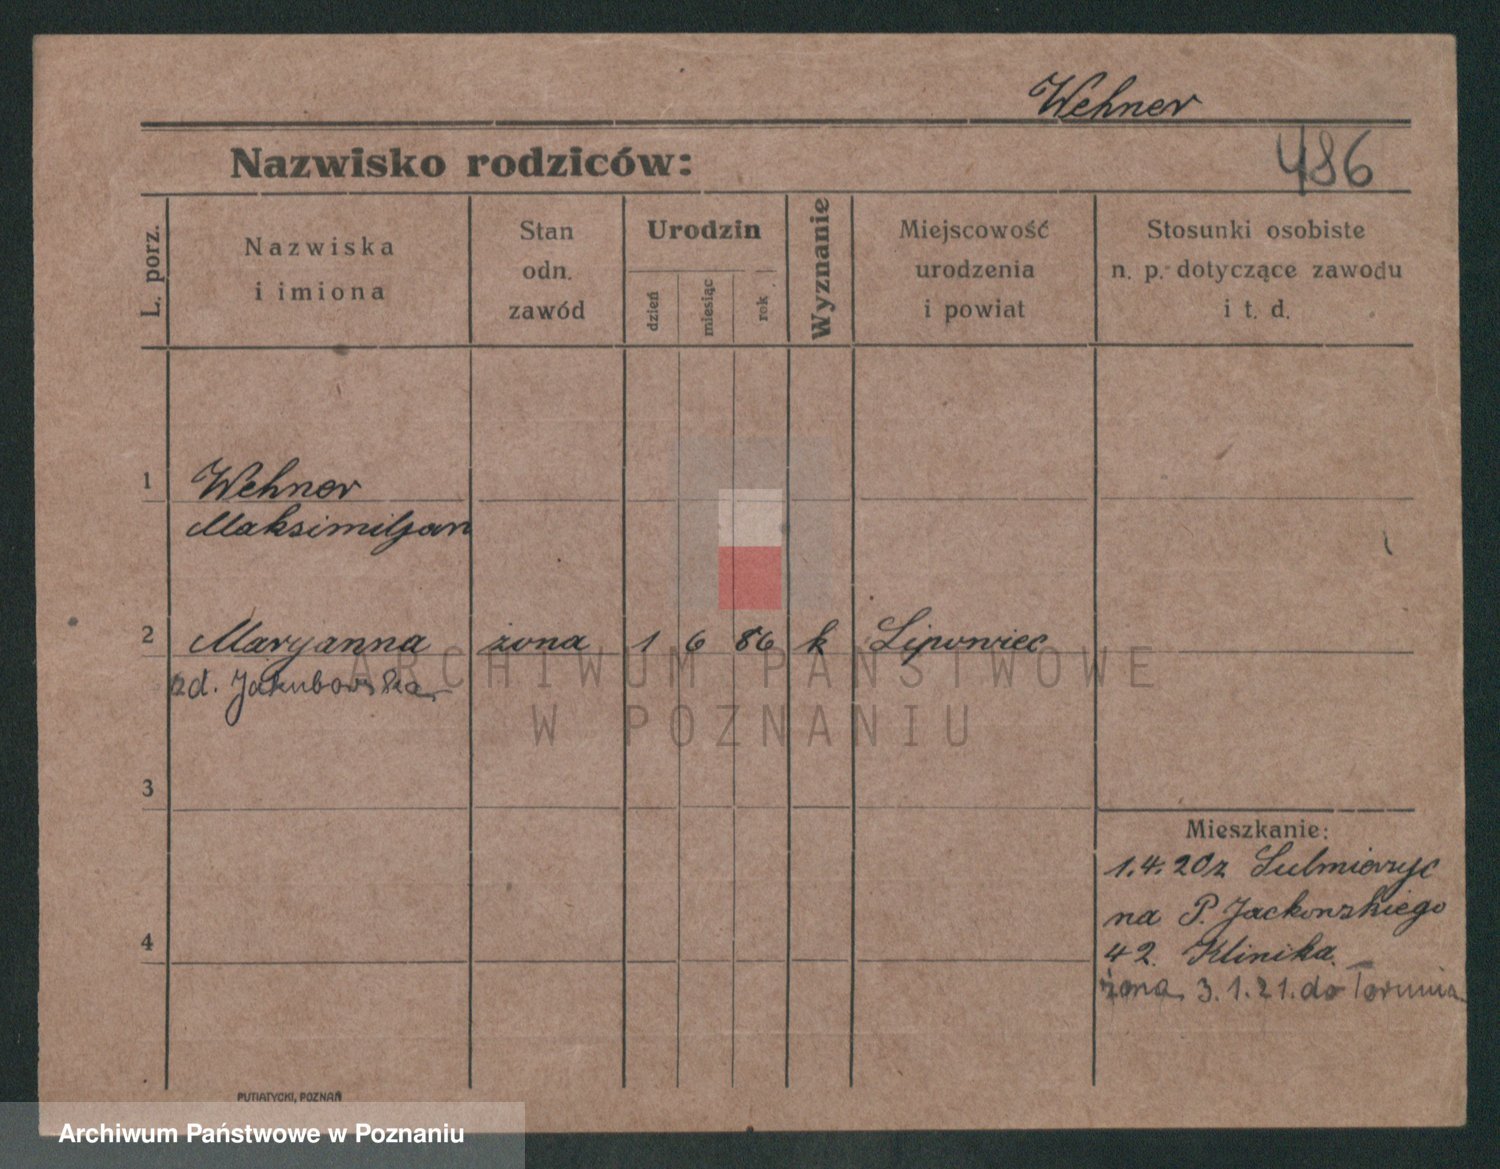 Wehner
Nazwisko rodziców:
486
L. porz.
Nazwiska
i imiona
Stan
odn.
zawód
Urodzin
dzień
miesiąc
rok
Wyznanie
Miejscowość
urodzenia
i powiat
Stosunki osobiste
n. p. dotyczące zawodu
i t. d.
1
Wehner
Maksimiljan
2 Maryanna żona 1 6 86 k Lipowiec
zd. Jakubowska
ARCHIWUM PAŃSTWOWE
W POZNANIU
3
Mieszkanie:
1.4.20 z Sulmierzyc
na P. Jackowskiego
4
42. Klinika.
żona 3.1.21. do Torunia
PUTIATYCKI, POZNAŃ
Archiwum Państwowe w Poznaniu